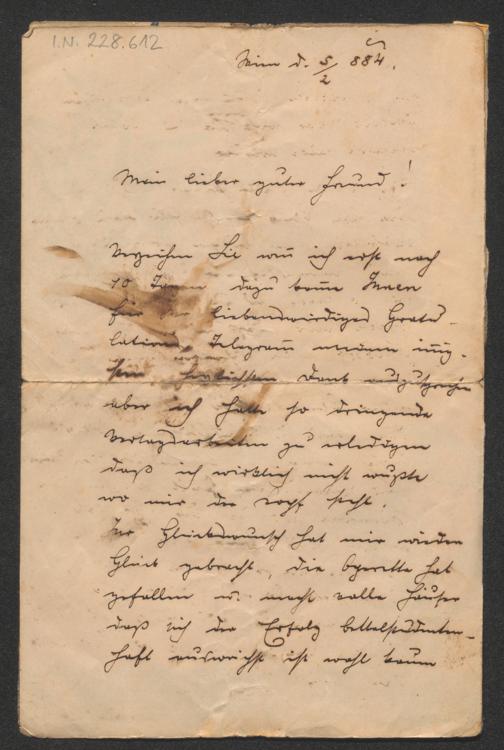 I.N. 228.612
Wien d. 5/2 884.
Mein lieber guter Freund!
Verzeihen Sie wenn ich erst nach
10 Tagen dazu komme Ihnen
für Ihr liebenswürdiges Gratu-
lations Telegramm meinen innig-
sten herzlichsten Dank auszusprechen
aber ich hatte so dringende
Verlagsarbeiten zu erledigen
daß ich wirklich nicht wußte
wo mir der Kopf steht.
Ihr Glückswunsch hat mir wieder
Glück gebracht, die Operette hat
gefallen u. macht volle Häuser
daß sich der Erfolg bettelstudenten-
haft auswächst ist wohl kaum